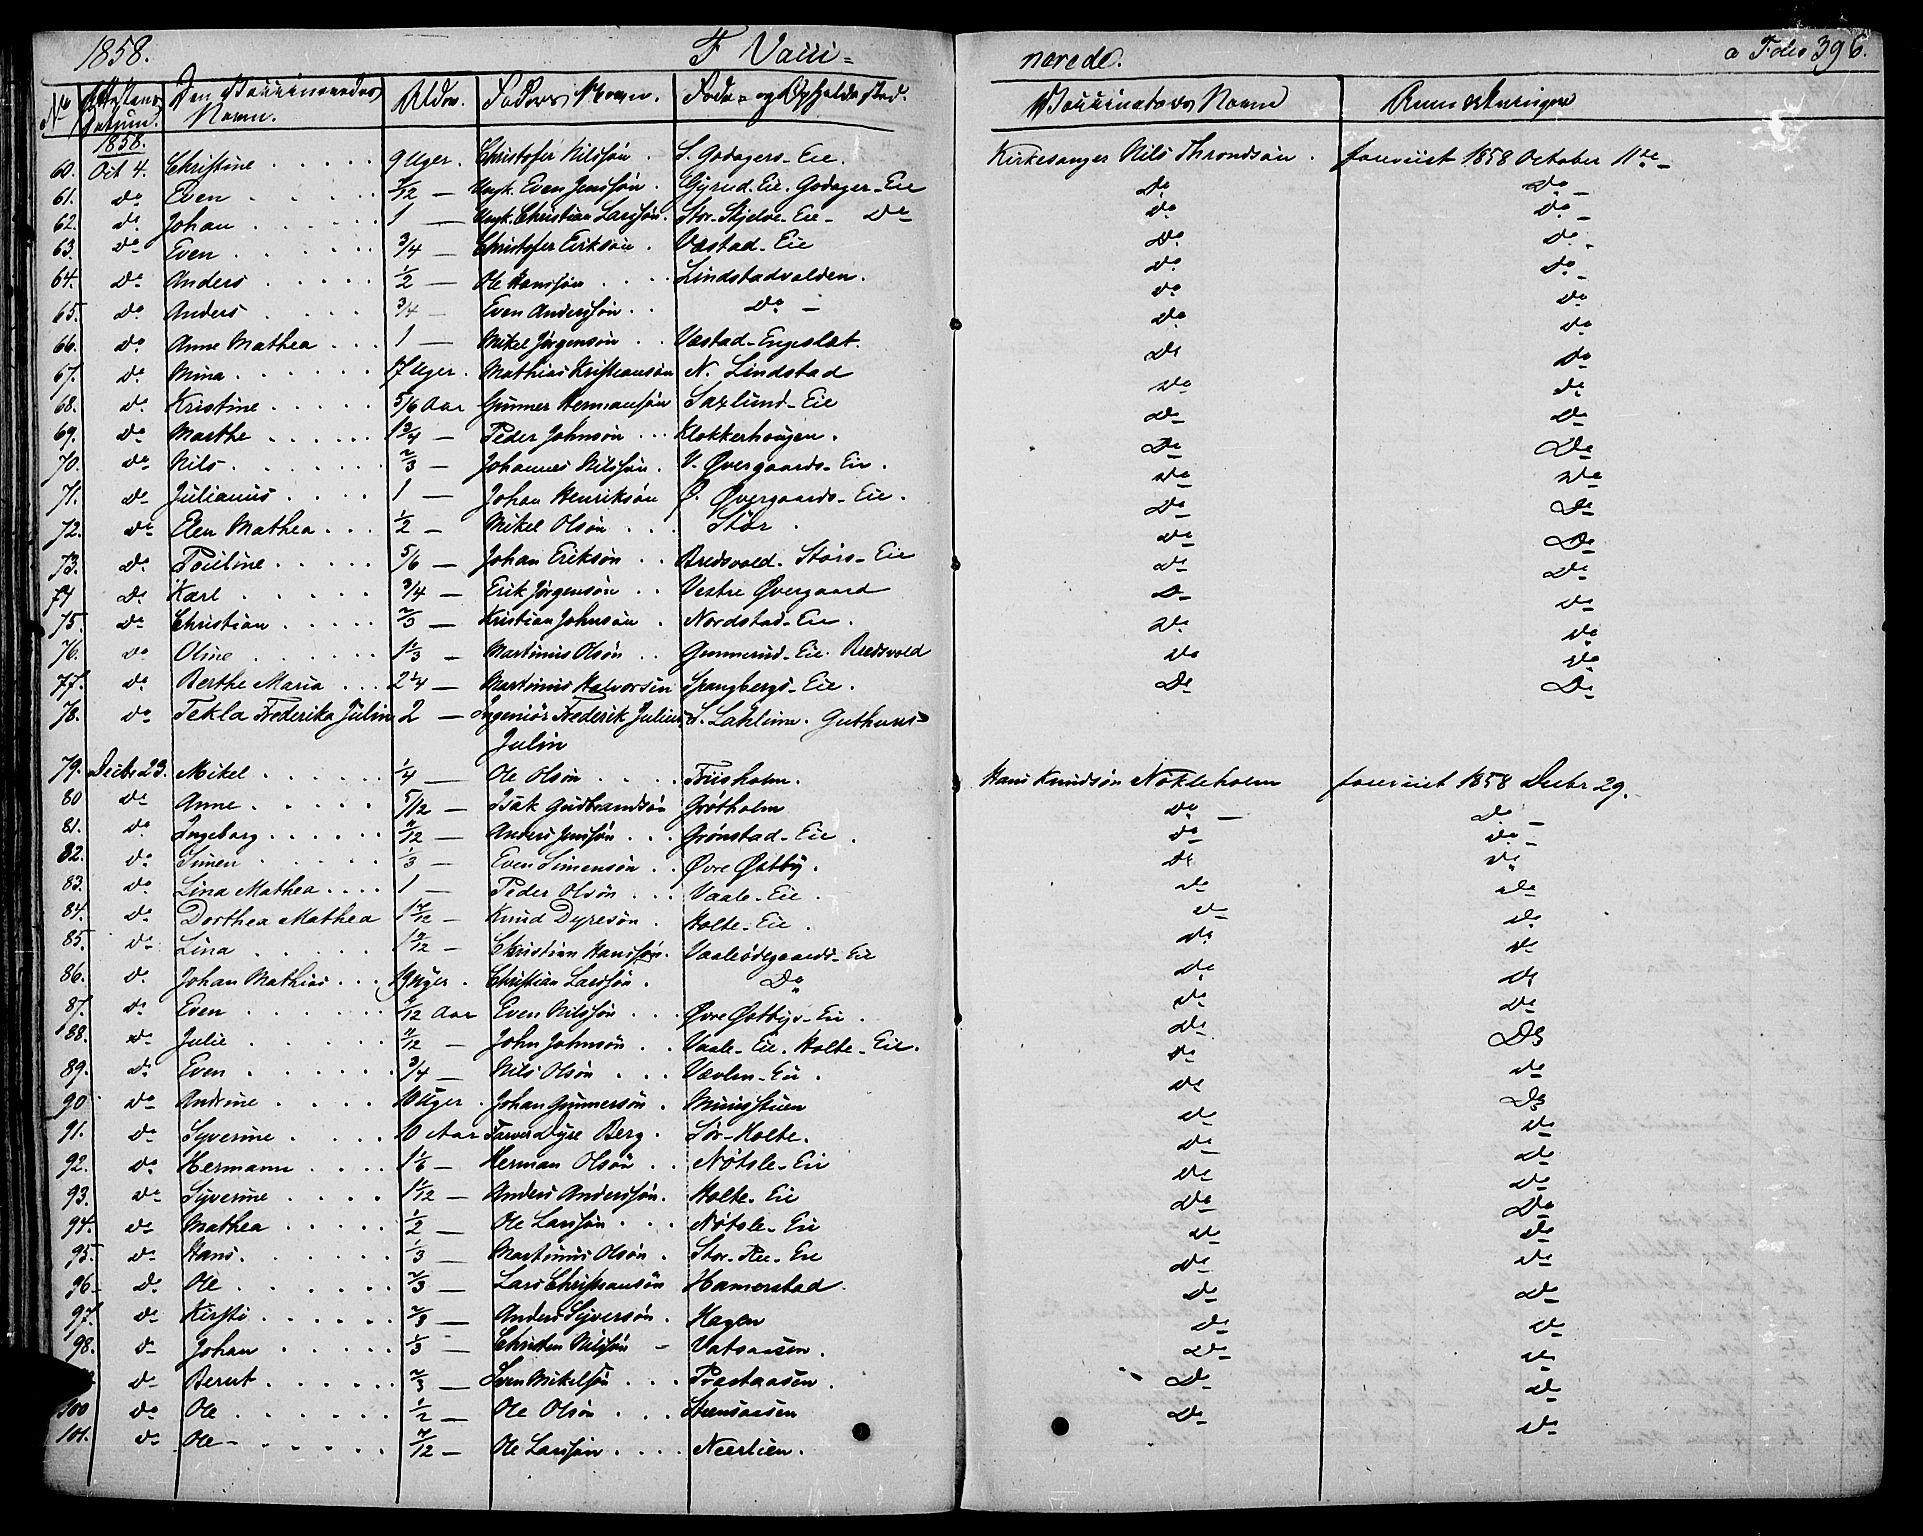 1858. F Vacci= nerede. a Folio 396.
No Attestens Datum. Den Vaccineredes Navn. Alder. Faders Navn. Føde- og Opholds Sted. Vaccinateurs Navn Anmærkninger
1858.
60. Oct 4. Christine 9 Uger. Christofer Nilssøn. S. Godagers-Eie. Kirkesanger Nils Throndsøn. foreviist 1858 October 11te
61. do Even /12 — Ungk. Even Jenssøn. Gjerud-Eie. Godager-Eie do do
62. do Johan 1 — Ungk. Christian Larssøn. Stor-Skjelve-Eie- do do do
63. do Even 3/4 — Christofer Eriksøn. Væstad-Eie do do
64. do Anders 1/2 — Ole Hanssøn Lindstadvolden. do do
65. do Anders 3/4 — Even Anderssøn do do do
66. do Anne Mathea 1 — Mikel Jørgensøn Væstad-Engeslæt. do do
67. do Mina 17 Uger. Mathias Kristiansøn N. Lindstad do do
68. do Kristine 5/6 Aar Gunner Hermansøn Saxlund-Eie do do
69. do Marthe 1 3/4 — Peder Johnsøn Klokkerhougen. do do
70. do Nils 2/3 — Johannes Nilssøn. V. Øvergaards-Eie. do do
71. do Julianus 1 — Johan Henriksøn Ø. Øvergaards-Eie. do do
72. do Elen Mathea 1/2 — Mikel Olsøn Stör. do do
73. do Pouline 5/6 — Johan Eriksøn Bredsvold. Störs-Eie do do
74 do Karl 3/4 — Erik Jørgensøn Vestre Øvergaard do do
75. do Christian 2/3 — Kristian Johnsøn. Nordstad-Eie. do do
76. do Oline 1 1/3 — Martinus Olsøn Gunnerud-Eie. Bredsvold do do
77. do Berthe Maria 2 1/4 — Martinus Halvorsen Spangbergs-Eie. do do
78. do Tekla Frederika Julin 2 — Ingeniör Frederik Julius S. Lahlum. Guthuus do do
Julin
79. Decbr 29. Mikel 1/4 — Ole Olsøn Friisholm. Hans Knudsøn Nökleholm foreviist 1858 Decbr 29.
80 do Anne 5/12 — Isak Gudbrandsøn Grøtholm do do
81. do Ingeborg /12 — Anders Jenssøn Grönstad-Eie. do do
82. do Simen 1/3 — Even Simensøn Øvre Østby. do do
83. do Lina Mathea 1 — Peder Olsøn Vaale-Eie. do do
84. do Dorthea Mathea 1 /12 — Knud Dyresøn. Holte-Eie. do do
85. do Lina 1 /12 — Christian Hanssøn. Vaaleödegaards-Eie do do
86. do Johan Mathias 19 Uger. Christian Larssøn. do do do
87. do Even /12 Aar Even Nilssøn Øvre Østbyes-Eie. do do
88. do Julie /12 — John Johnsøn Vaale-Eie. Holte-Eie. do do
89. do Even 3/4 — Nils Olsøn Vævlen-Eie. do do
90. do Andrine 10 Uger. Johan Gunnersøn. Muusstuen do do
91. do Syverine 10 Aar Farver Dyre Berg. Sör-Holte. do do
92. do Hermann 1 1/6 — Herman Olsøn Nötsle-Eie do do
93. do Syverine 1 /12 — Anders Anderssøn. Holte-Eie do do
94. do Mathea 1/2 — Ole Larssøn Nötsle-Eie do do
95. do Hans. 1/3 — Martinus Olsøn. Stor-Ree-Eie do do
96 do Ole 2/3 — Lars Christiansøn Hamerstad. do do
97. do Kirsti 2/3 — Anders Syversøn. Hagen do do
98. do Johan 1/3 — Christen Nilssøn Vatsaasen. do do
do Bernt 2/3 — Sven Mikelsøn Præstaasen. do do
100 do Ole 1/2 — Ole Olsøn Steensaasen do do
101. do Ole /12 — Ole Larssøn Neerlien.